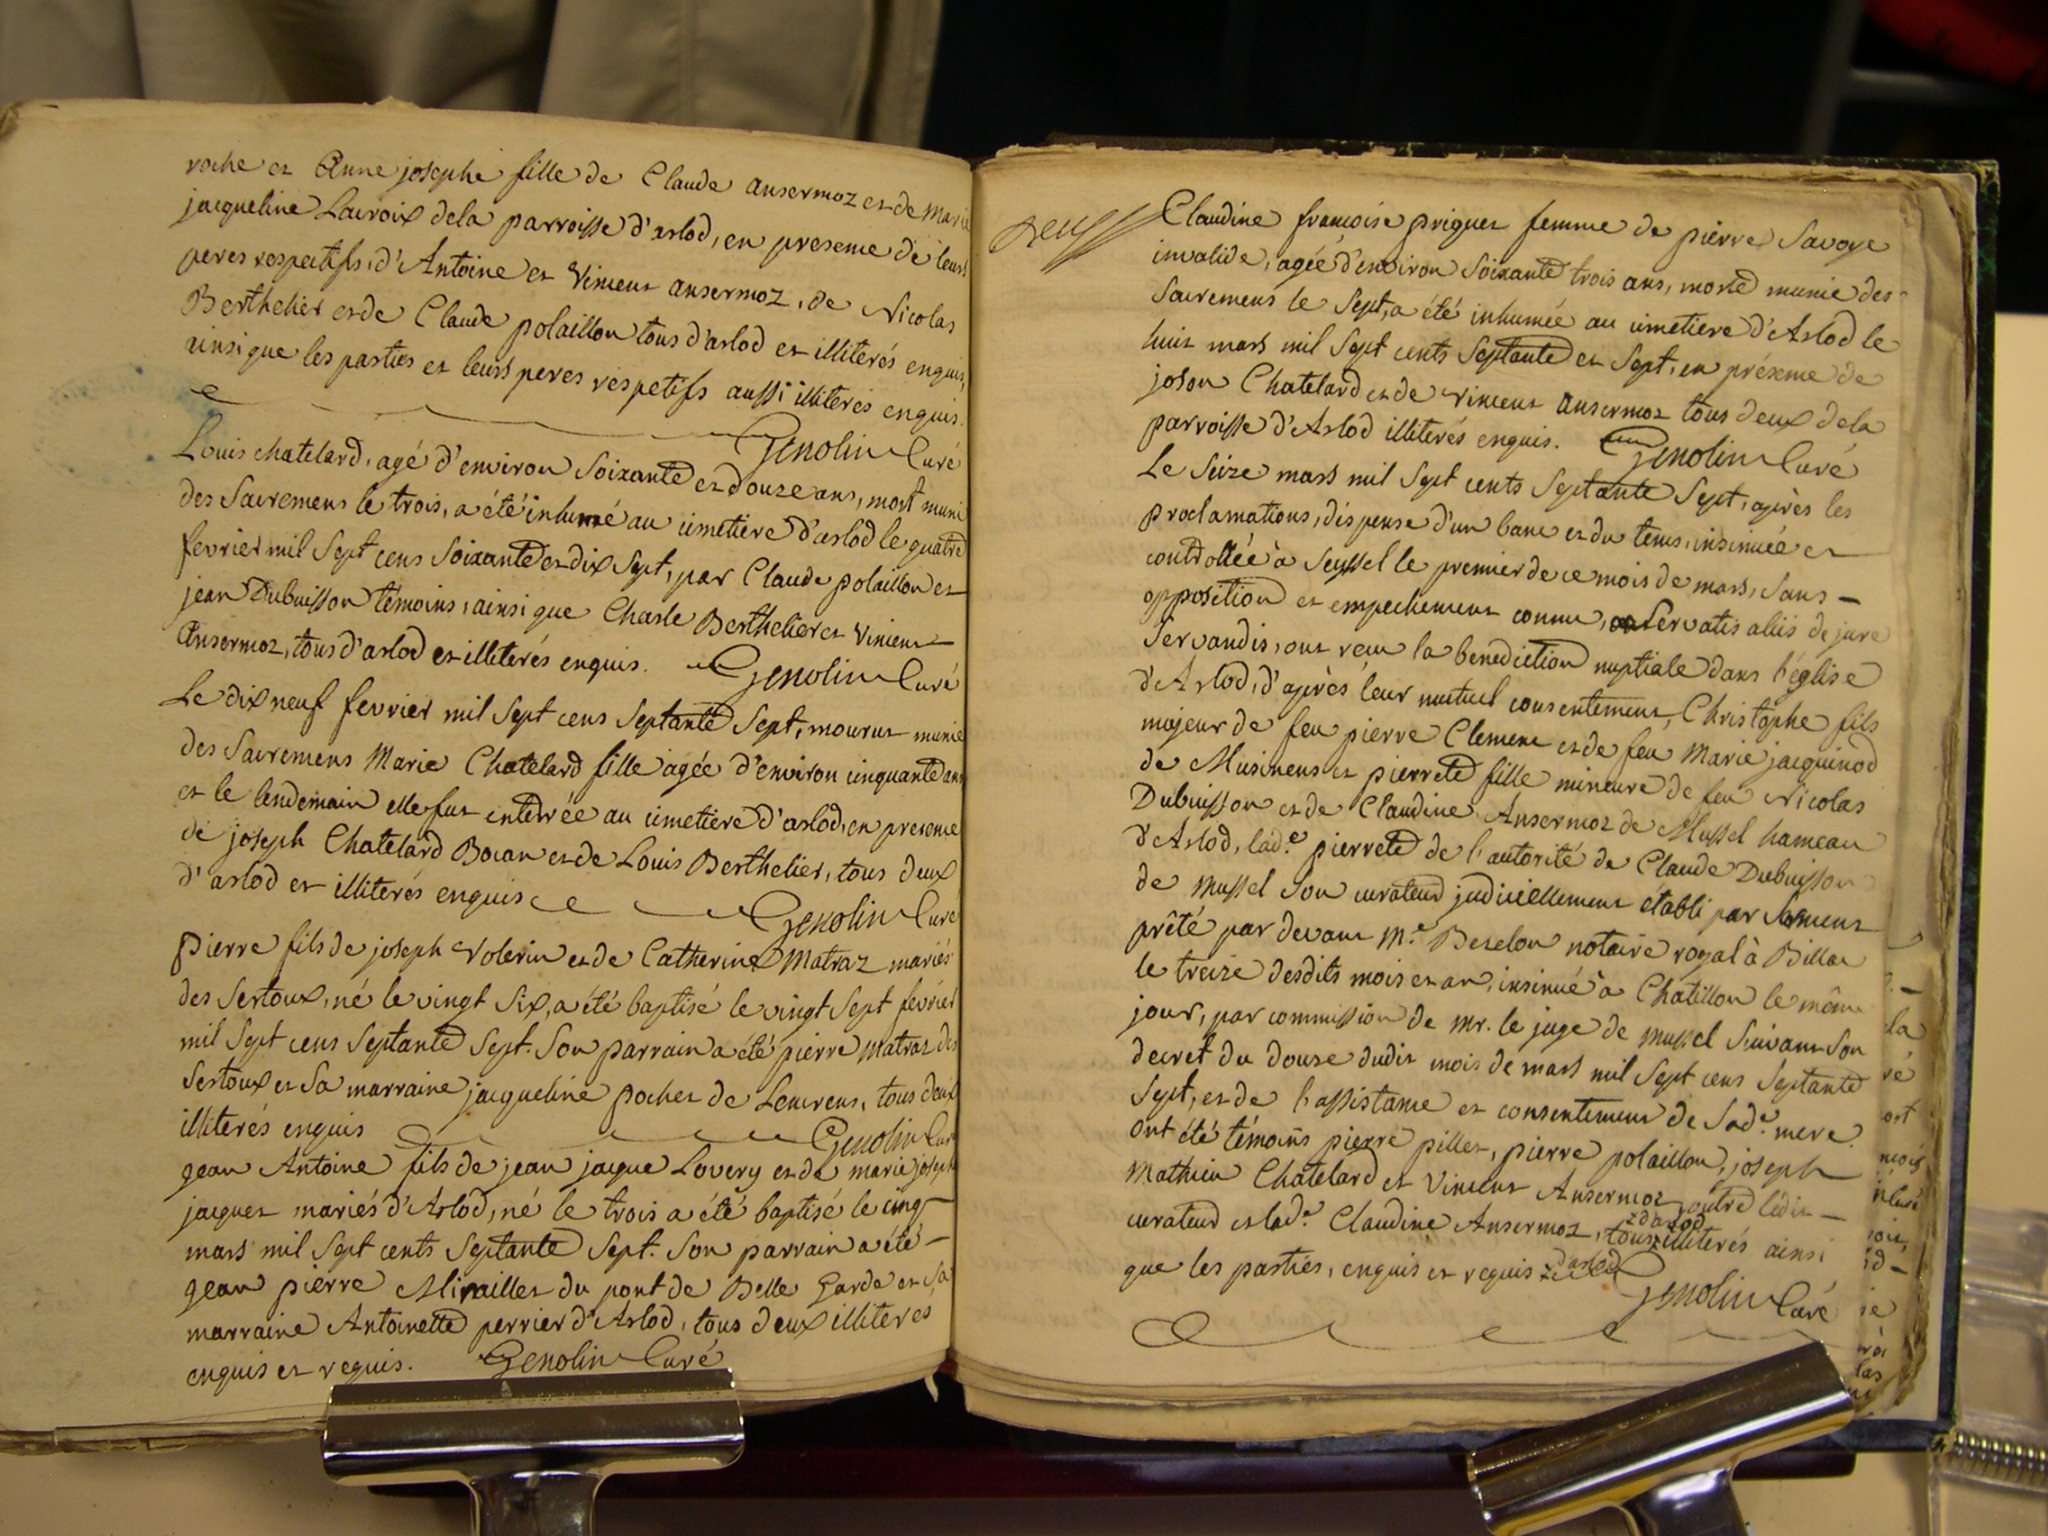 roche et Anne josephe fille de Claude ansermoz et de Marie
jacqueline Lacroix dela parroisse d'arlod, en presence de leurs
peres respectifs, d'Antoine et Vincent ansermoz, de Nicolas
Berthelier et de Claude polaillon tous d'arlod et illiterés enquis,
ainsi que les parties et leurs peres respetifs aussi illiterés enquis.
Genolin Curé
Louis chatelard, agé d'environ soixante et douze ans, mort muni
des Sacremens le trois, a été inhumé au cimetiere d'arlod le quatre
fevrier mil sept cens soixante et dix sept, par Claude polaillon et
jean Dubuisson témoins, ainsi que Charle Berthelier et Vincent
Ansermoz, tous d'arlod et illiterés enquis. Genolin Curé
Le dix neuf fevrier mil sept cens septante sept, mourut munie
des Sacremens Marie Chatelard fille agée d'environ cinquante ans
et le lendemain elle fut enterrée au cimetiere d'arlod, en presence
de joseph Chatelard Bocan et de Louis Berthelier, tous deux
d'arlod et illiterés enquis Genolin Curé
Pierre fils de joseph Volerin et de Catherine Matraz mariés
des Sertoux, né le vingt six, a été baptisé le vingt sept fevrier
mil sept cens septante sept. Son parrain a été pierre matraz des
Sertoux et sa marraine jacqueline pochet de Lencrens, tous deux
illiterés enquis Genolin Curé
Jean Antoine fils de jean jacque Lovery et de marie joseph
jacquet mariés d'Arlod, né le trois a été baptisé le cinq
mars mil sept cents septante sept. Son parrain a été
jean pierre Mirailler du pont de Belle Garde et sa
marraine Antoinette perrier d'Arlod, tous deux illiteres
enquis et requis. Genolin Curé
Claudine francoise priquet femme de pierre Savoye
invalide, agée d'environ soixante trois ans, morte munie des
Sacremens le sept, a été inhumée au cimetiere d'Arlod le
huit mars mil sept cents septante et sept, en présence de
joson Chatelard et de Vincent ansermoz tous deux dela
parroisse d'Arlod illiterés enquis. Genolin Curé
Le seize mars mil sept cents septante sept, après les
proclamations, dispense d'un banc et du tems, insinuée et
controllée à Seyssel le premier de ce mois de mars, sans
opposition et empechement connu, servatis aliis de jure
servandis, ont recu la benediction nuptiale dans l'église
d'Arlod, d'après leur mutuel consentement, Christophe fils
majeur de feu pierre Clement et de feu Marie jacquinod
de Musinens et pierrete fille mineure de feu Nicolas
Dubuisson et de Claudine Ansermoz de Mussel hameau
d'Arlod, lad.e pierrete de l'autorité de Claude Dubuisson
de mussel son curateur judiciellement établi par serment
prêté par devant M.e Beselon notaire royal à Billia
le treize desdits mois et an, insinué à Chatillon le même
jour, par commission de Mr. le juge de mussel suivant son
decret du douze dudit mois de mars mil sept cens septante
sept, et de l'assistance et consentement de sad.e mere.
ont été témoins pierre pillet, pierre polaillon, joseph
Mathieu Chatelard et Vincent Ansermoz, outre ledit
curateur et lad.e Claudine Ansermoz, tous illiterés ainsi
d'arlod
que les parties, enquis et requis d'arlod
Genolin Curé